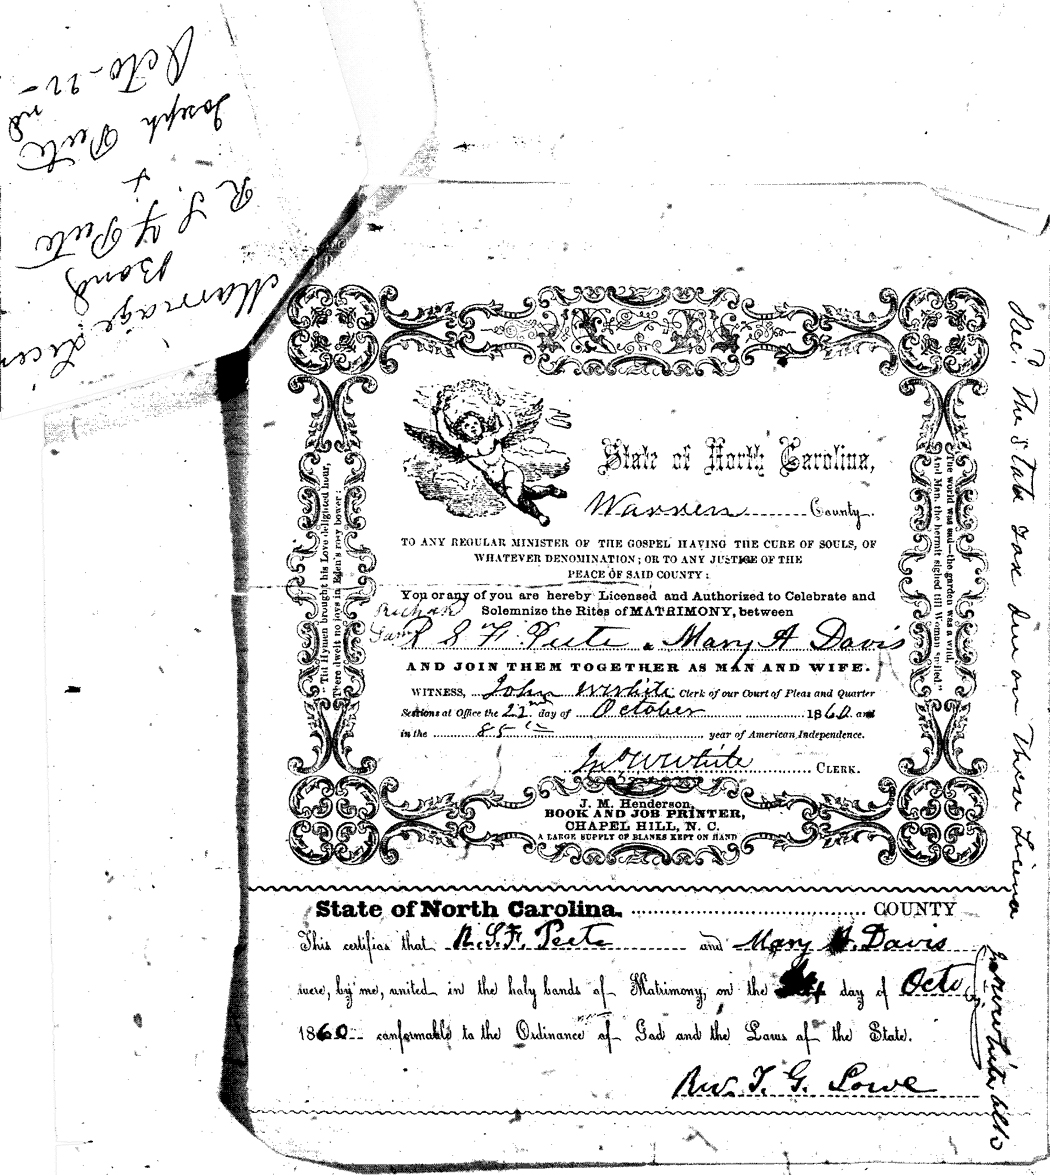 Marriage Licen
Bond
R S F Peete
+
Joseph Peete
Octo. 22nd
State of North Carolina,
Warren County.
TO ANY REGULAR MINISTER OF THE GOSPEL HAVING THE CURE OF SOULS, OF
WHATEVER DENOMINATION; OR TO ANY JUSTICE OF THE
PEACE OF SAID COUNTY:
You or any of you are hereby Licensed and Authorized to Celebrate and
Solemnize the Rites of MATRIMONY, between
Richard
R S F Peete & Mary A Davis
AND JOIN THEM TOGETHER AS MAN AND WIFE.
WITNESS, John W White Clerk of our Court of Pleas and Quarter
Sessions at Office the 22nd day of October 1860. and
in the 85th year of American Independence.
Jno W White CLERK.
J. M. Henderson,
BOOK AND JOB PRINTER,
CHAPEL HILL, N. C.
A LARGE SUPPLY OF BLANKS KEPT ON HAND
'Till Hymen brought his Love delighted hour,
There dwelt no joys in Eden's rosy bower:
The world was sad—the garden was a wild,
And Man, the hermit sighed till Woman smiled."
Rec'd. The State Tax due on These License
Jno W White Clk
State of North Carolina. COUNTY
This certifies that R. S. F. Peete and Mary A. Davis
were, by me, united in the holy bands of Matrimony, on the day of Octo
1860 conformable to the Ordinance of God and the Laws of the State.
Rev. T. G. Lowe